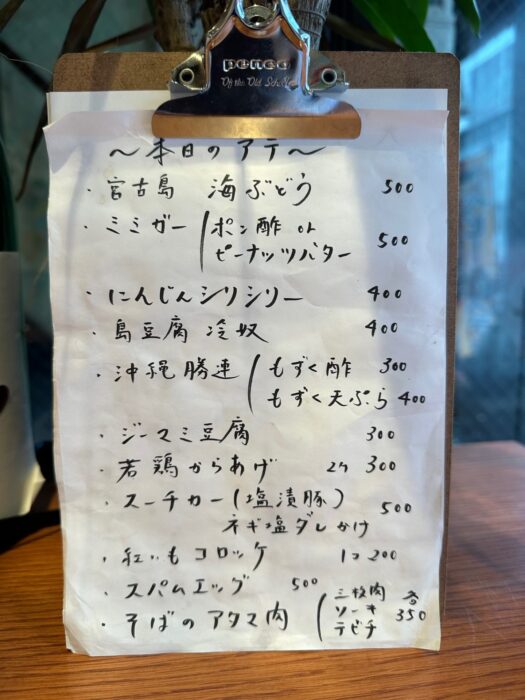 penco
Of the Old School
〜本日のアテ〜
・宮古島 海ぶどう 500
・ミミガー ポン酢 or
ピーナッツバター 500
・にんじんシリシリー 400
・島豆腐 冷奴 400
・沖縄勝連 もずく酢 300
もずく天ぷら 400
・ジーマミ豆腐 300
・若鶏からあげ 2ヶ 300
・スーチカー(塩漬豚) 500
ネギ塩ダレかけ
・紅いもコロッケ 1コ 200
・スパムエッグ 500
・そばのアタマ肉 三枚肉
ソーキ
テビチ
各 350